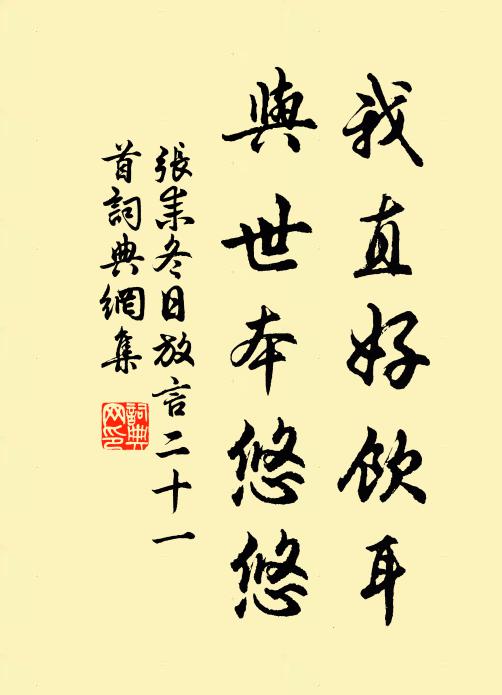 我直好飲耳
與世本悠悠
張耒冬日放言二十一
首詞典網集
詞典网印